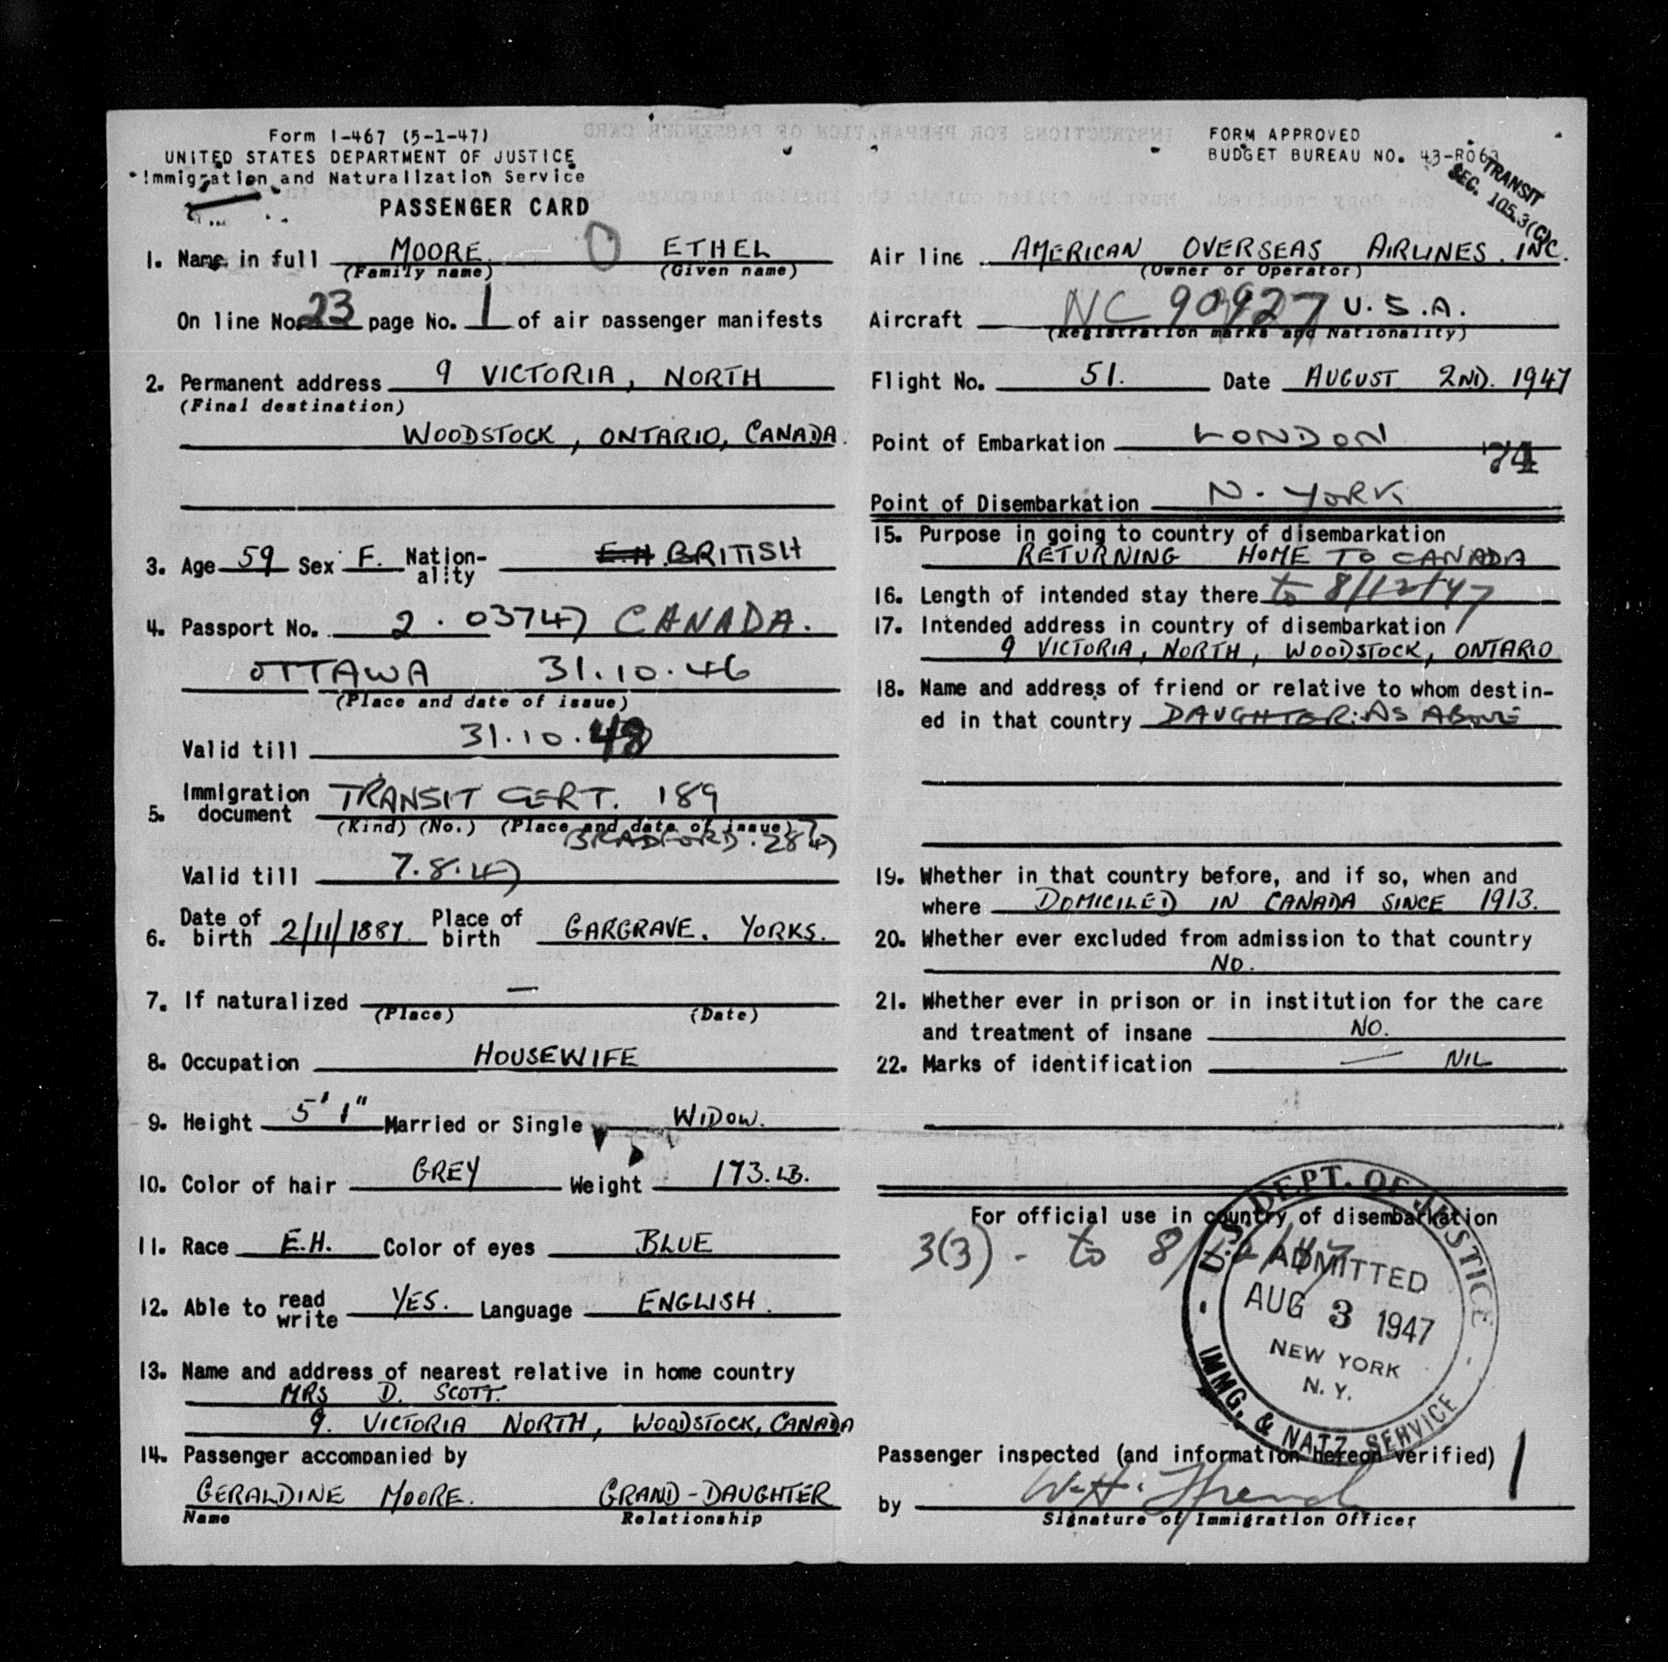 Form I-467 (5-1-47)
UNITED STATES DEPARTMENT OF JUSTICE
Immigration and Naturalization Service
PASSENGER CARD
1. Name in full MOORE ETHEL
(Family name) (Given name)
On line No. 23 page No. 1 of air passenger manifests
2. Permanent address 9 VICTORIA, NORTH
(Final destination)
WOODSTOCK, ONTARIO, CANADA.
3. Age 59 Sex F. Nation-ality E.H. BRITISH
4. Passport No. 2.03747 CANADA.
OTTAWA 31.10.46
(Place and date of issue)
Valid till 31.10.48
5. Immigration document TRANSIT CERT. 189
(Kind) (No.) (Place and date of issue)
BRADFORD. 28 47
Valid till 7.8.47
6. Date of birth 2/11/1887. Place of birth GARGRAVE. YORKS.
7. If naturalized —
(Place) (Date)
8. Occupation HOUSEWIFE
9. Height 5' 1" Married or Single WIDOW.
10. Color of hair GREY Weight 173. LB.
11. Race E.H. Color of eyes BLUE
12. Able to read write YES. Language ENGLISH.
13. Name and address of nearest relative in home country
MRS D. SCOTT.
9. VICTORIA NORTH, WOODSTOCK, CANADA
14. Passenger accompanied by
GERALDINE MOORE. GRAND-DAUGHTER
Name Relationship
FORM APPROVED
BUDGET BUREAU NO. 43-R063
TRANSIT
SEC. 105.3(C)
Air line AMERICAN OVERSEAS AIRLINES. INC.
(Owner or Operator)
Aircraft NC 90927 U.S.A.
(Registration marks and Nationality)
Flight No. 51. Date AUGUST 2ND. 1947
Point of Embarkation LONDON
74
Point of Disembarkation N. YORK
15. Purpose in going to country of disembarkation
RETURNING HOME TO CANADA
16. Length of intended stay there to 8/12/47
17. Intended address in country of disembarkation
9 VICTORIA, NORTH, WOODSTOCK, ONTARIO
18. Name and address of friend or relative to whom destin-
ed in that country DAUGHTER: AS ABOVE
19. Whether in that country before, and if so, when and
where DOMICILED IN CANADA SINCE 1913.
20. Whether ever excluded from admission to that country
NO.
21. Whether ever in prison or in institution for the care
and treatment of insane NO.
22. Marks of identification — NIL
For official use in country of disembarkation
3(3) - to 8/12/47
U.S. DEPT. OF JUSTICE
ADMITTED
AUG 3 1947
NEW YORK
N. Y.
IMMG. & NATZ. SERVICE
Passenger inspected (and information hereon verified)
by W.H.
Signature of Immigration Officer